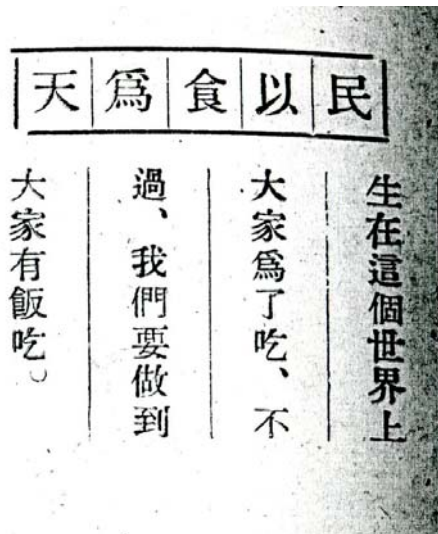 民以食爲天
生在這個世界上
大家爲了吃、不
過、我們要做到
大家有飯吃。